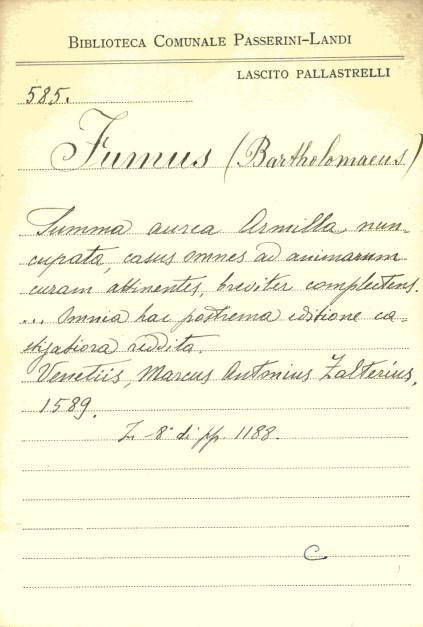 BIBLIOTECA COMUNALE PASSERINI-LANDI
LASCITO PALLASTRELLI
585.
Fumus (Bartholomaeus)
Summa aurea Armilla nun-
cupata, casus omnes ad animarum
curam attinentes, breviter complectens.
... Omnia hac postrema editione ca-
stigatiora reddita.
Venetiis, Marcus Antonius Zalterius,
1589.
In-8° di pp. 1188.
C